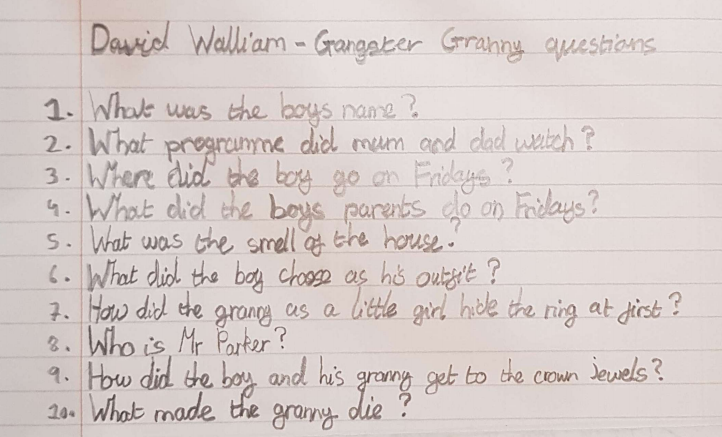 David Walliam - Gangster Granny questions
1. What was the boys name?
2. What programme did mum and dad watch?
3. Where did the boy go on Fridays?
4. What did the boys parents do on Fridays?
5. What was the smell of the house?
6. What did the boy choose as his outfit?
7. How did the granny as a little girl hide the ring at first?
8. Who is Mr Parker?
9. How did the boy and his granny get to the crown jewels?
10. What made the granny die?